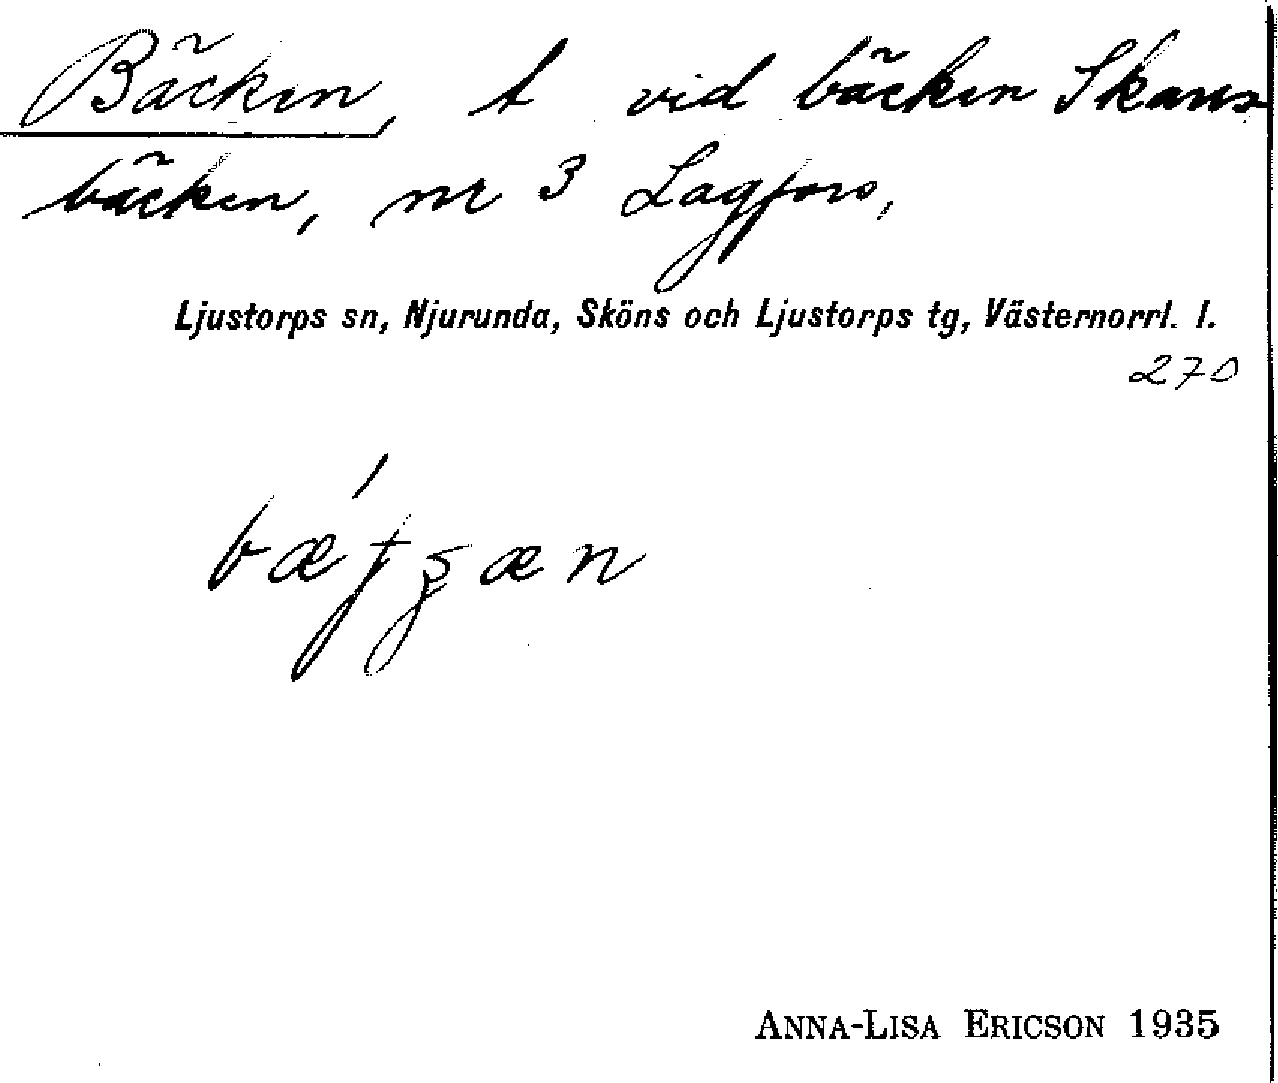 Bäcken, t vid bäcken Skans
bäcken, nr 3 Lagfors,
Ljustorps sn, Njurunda, Sköns och Ljustorps tg, Västernorrl. l.
270
ANNA-LISA ERICSON 1935